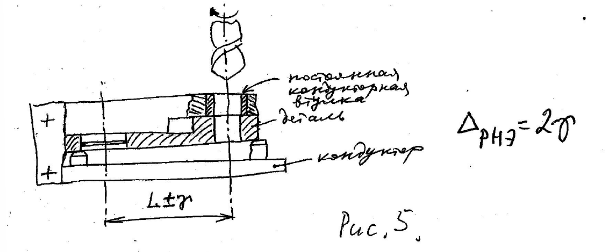 постоянная
кондукторная
втулка
деталь
кондуктор
L±γ
Рис. 5.
Δрнэ=2γ